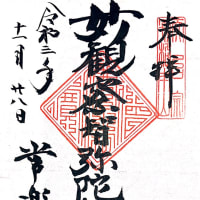 奉拝
妙観察智弥陀
令和三年
十一月廿八日
常楽